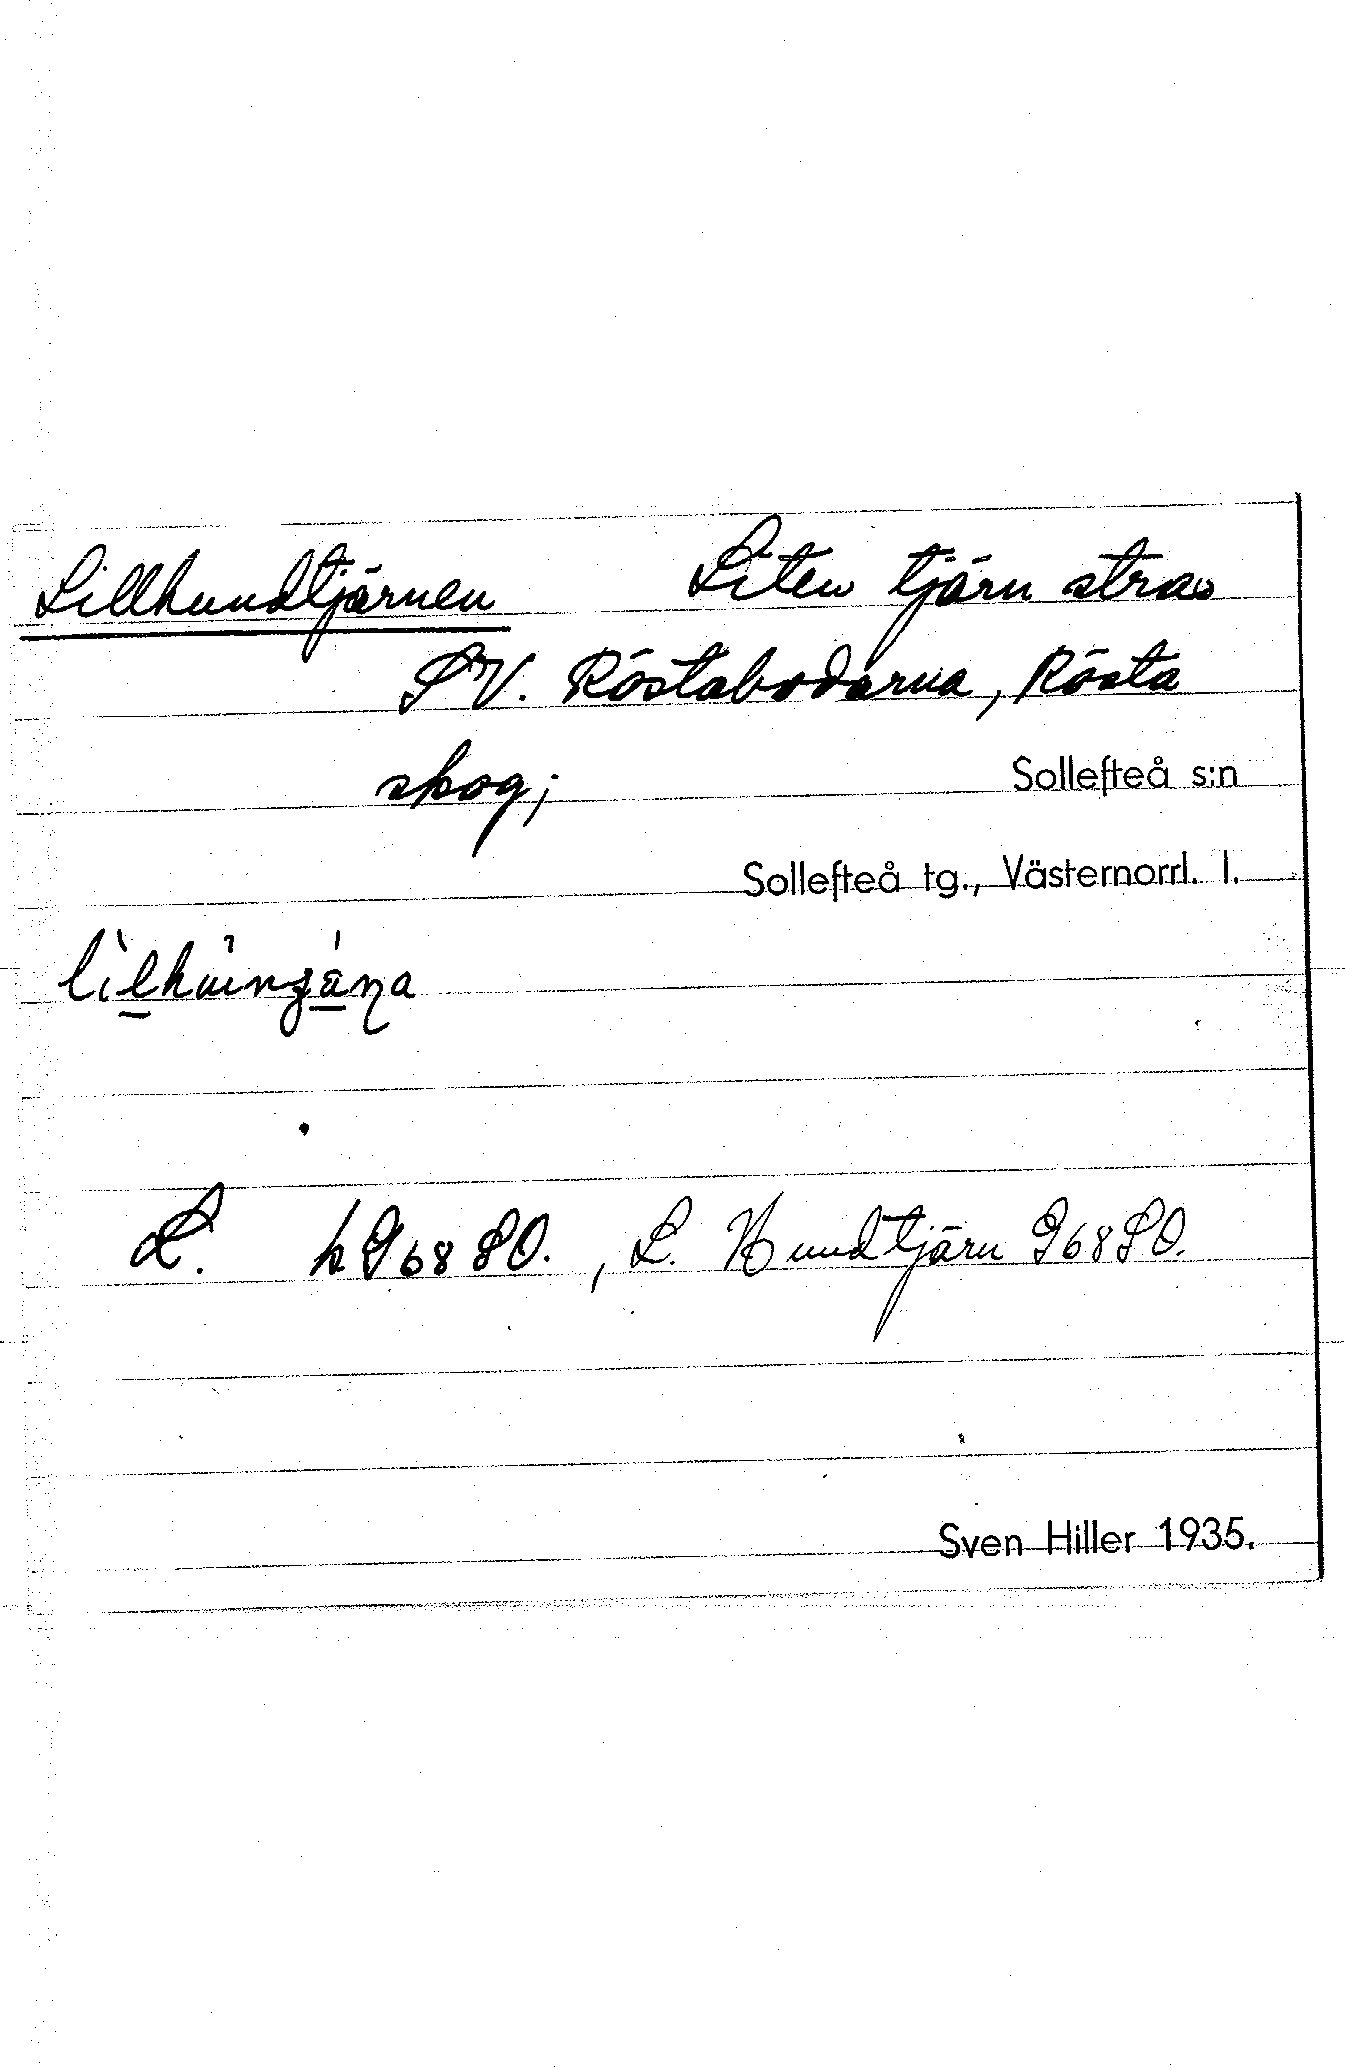 Lillhundtjärnen Liten tjärn strax
SV. Röstabodarna, Rösta
skog;
Sollefteå s:n
Sollefteå tg., Västernorrl. l.
L. h G68SO., L. Hundtjärn G68SO.
Sven Hiller 1935.